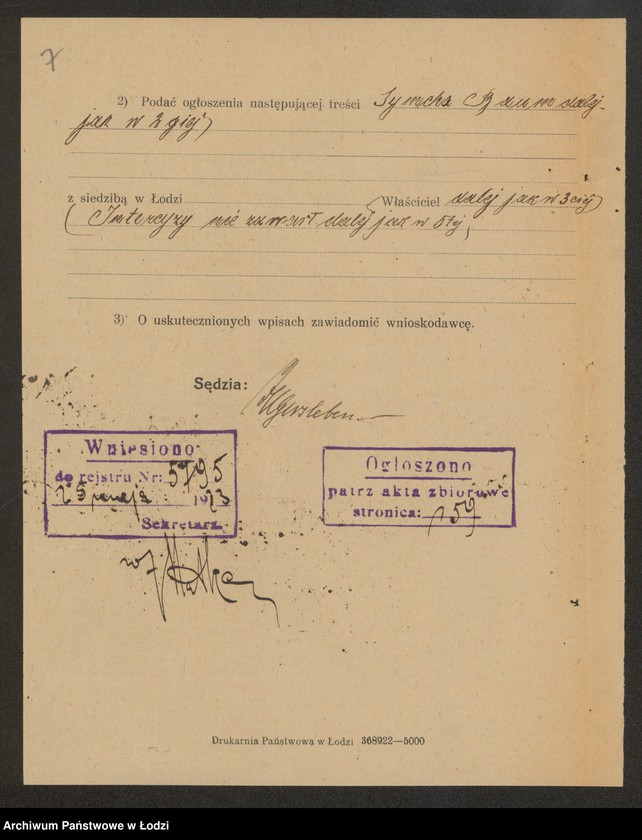 7
2) Podać ogłoszenia następującej treści Symcha Baum dalej
jak w 2giej)
z siedzibą w Łodzi (Właściciel dalej jak w 3ciej)
(Intercyzy nie zawarł dalej jak w 5tej,
3) O uskutecznionych wpisach zawiadomić wnioskodawcę.
Sędzia:
Wniesiono
do rejstru Nr: 5795
25 1923
Sekretarz
Ogłoszono
patrz akta zbiorowe
stronica: 59
Drukarnia Państwowa w Łodzi 368922—5000
Archiwum Państwowe w Łodzi